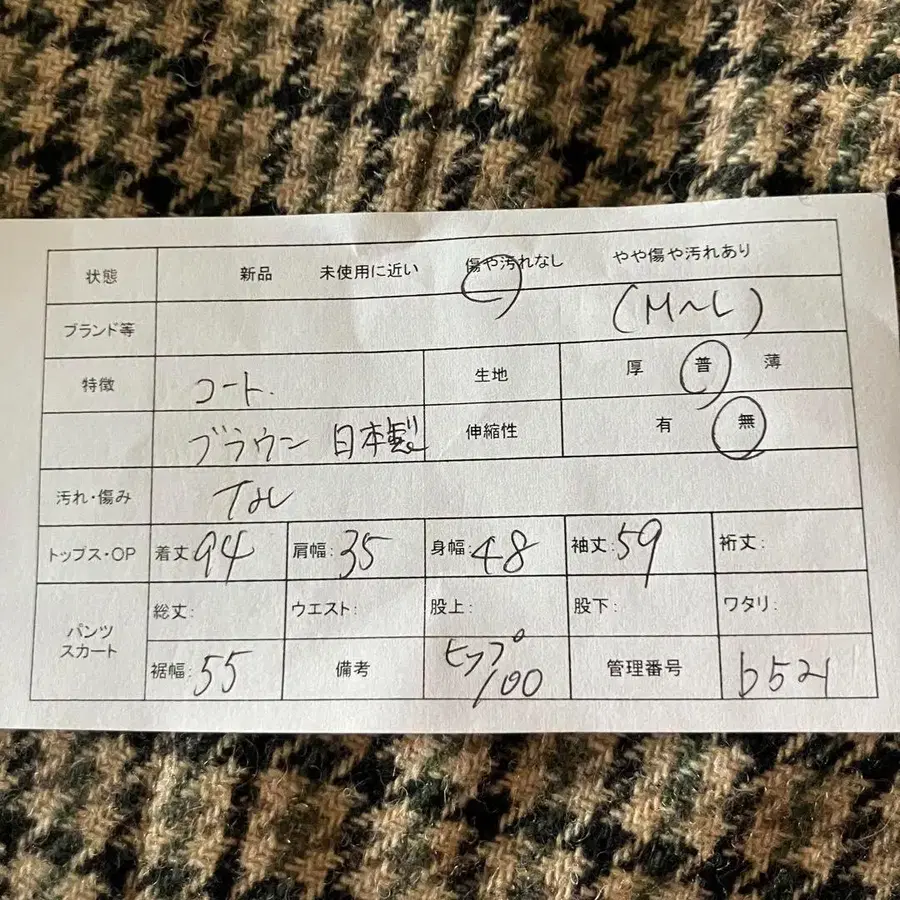 状態 新品 未使用に近い 傷や汚れなし やや傷や汚れあり
ブランド等 (M〜L)
特徴 コート. 生地 厚 普 薄
ブラウン 日本製 伸縮性 有 無
汚れ・傷み なし
トップス・OP 着丈:94 肩幅:35 身幅:48 袖丈:59 裄丈:
パンツ スカート 総丈: ウエスト: 股上: 股下: ワタリ:
裾幅:55 備考 ヒップ 100 管理番号 b521